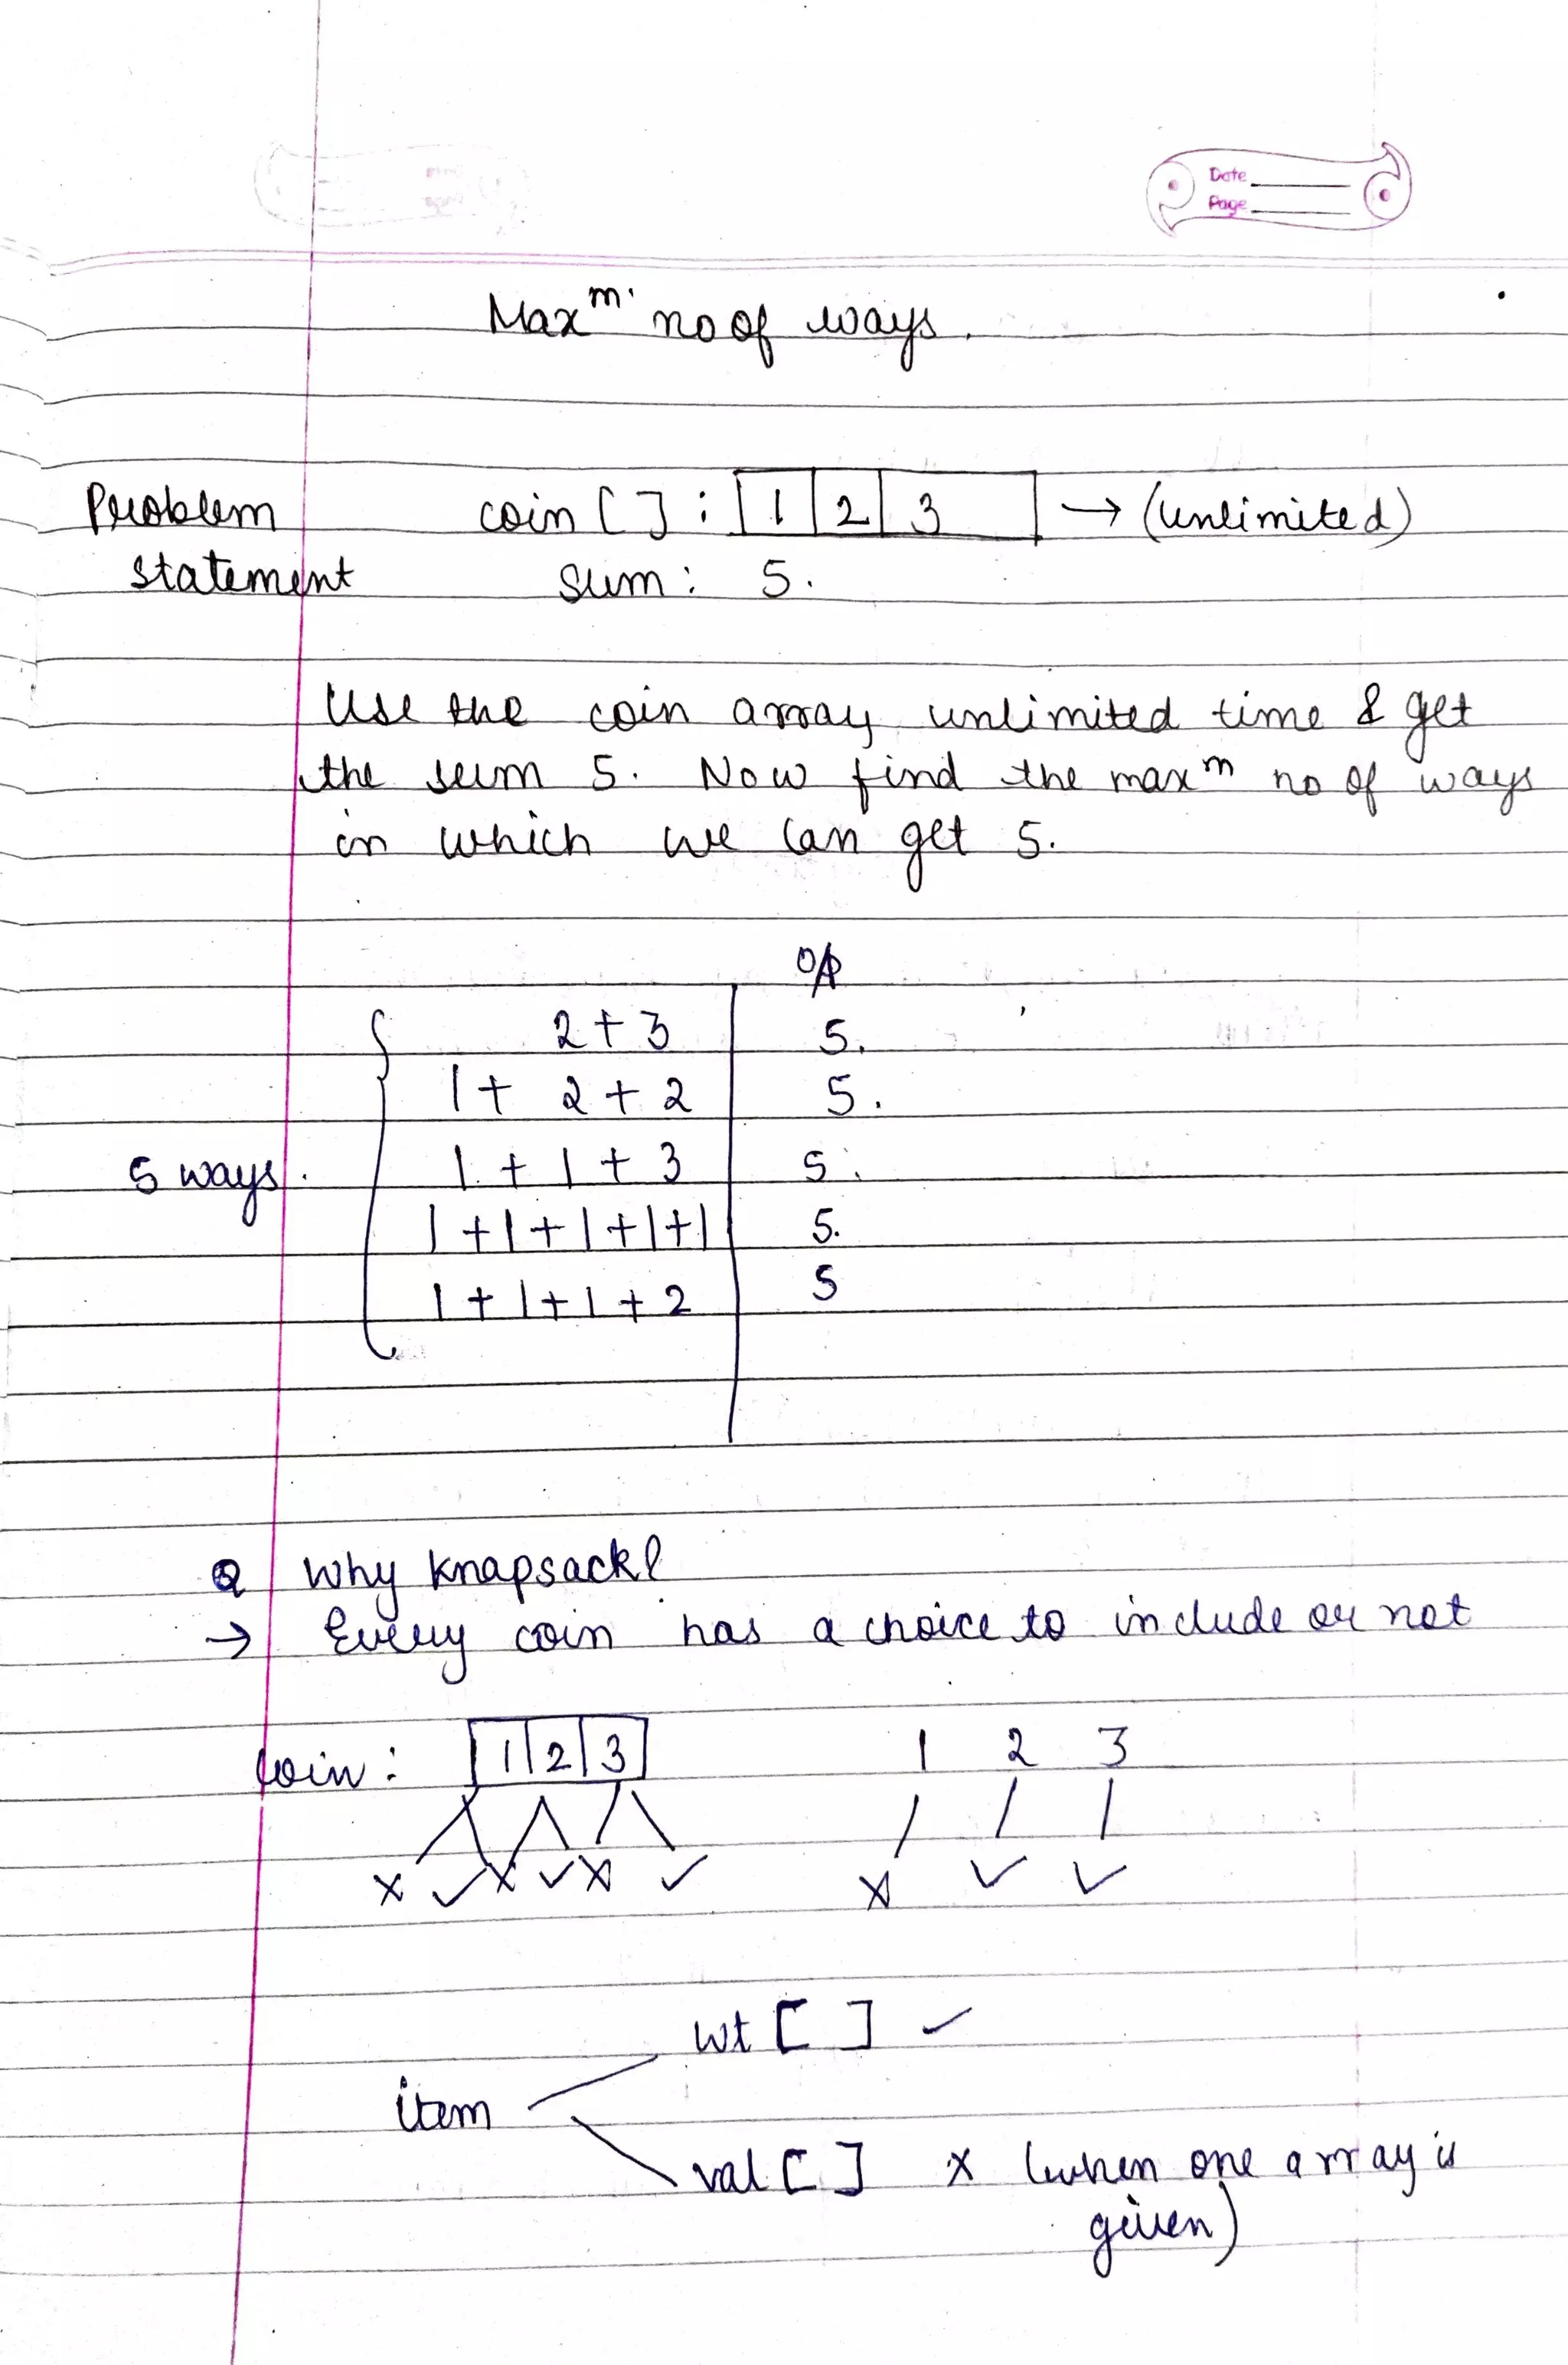 Date
Page
Maxᵐ· no of ways.
Problem statement
coin [ ] : 1 2 3 → (unlimited)
sum: 5.
Use the coin array unlimited time & get
the sum 5. Now find the maxᵐ no of ways
in which we can get 5.
O/P
2 + 3 5.
1 + 2 + 2 5.
5 ways. 1 + 1 + 3 5.
1 + 1 + 1 + 1 + 1 5.
1 + 1 + 1 + 2 5
Q Why Knapsack?
→ Every coin has a choice to include or not
coin: 1 2 3 1 2 3
× ✓ × ✓ × ✓ × ✓ ✓
wt [ ] ✓
item
val [ ] × (when one array is
given)